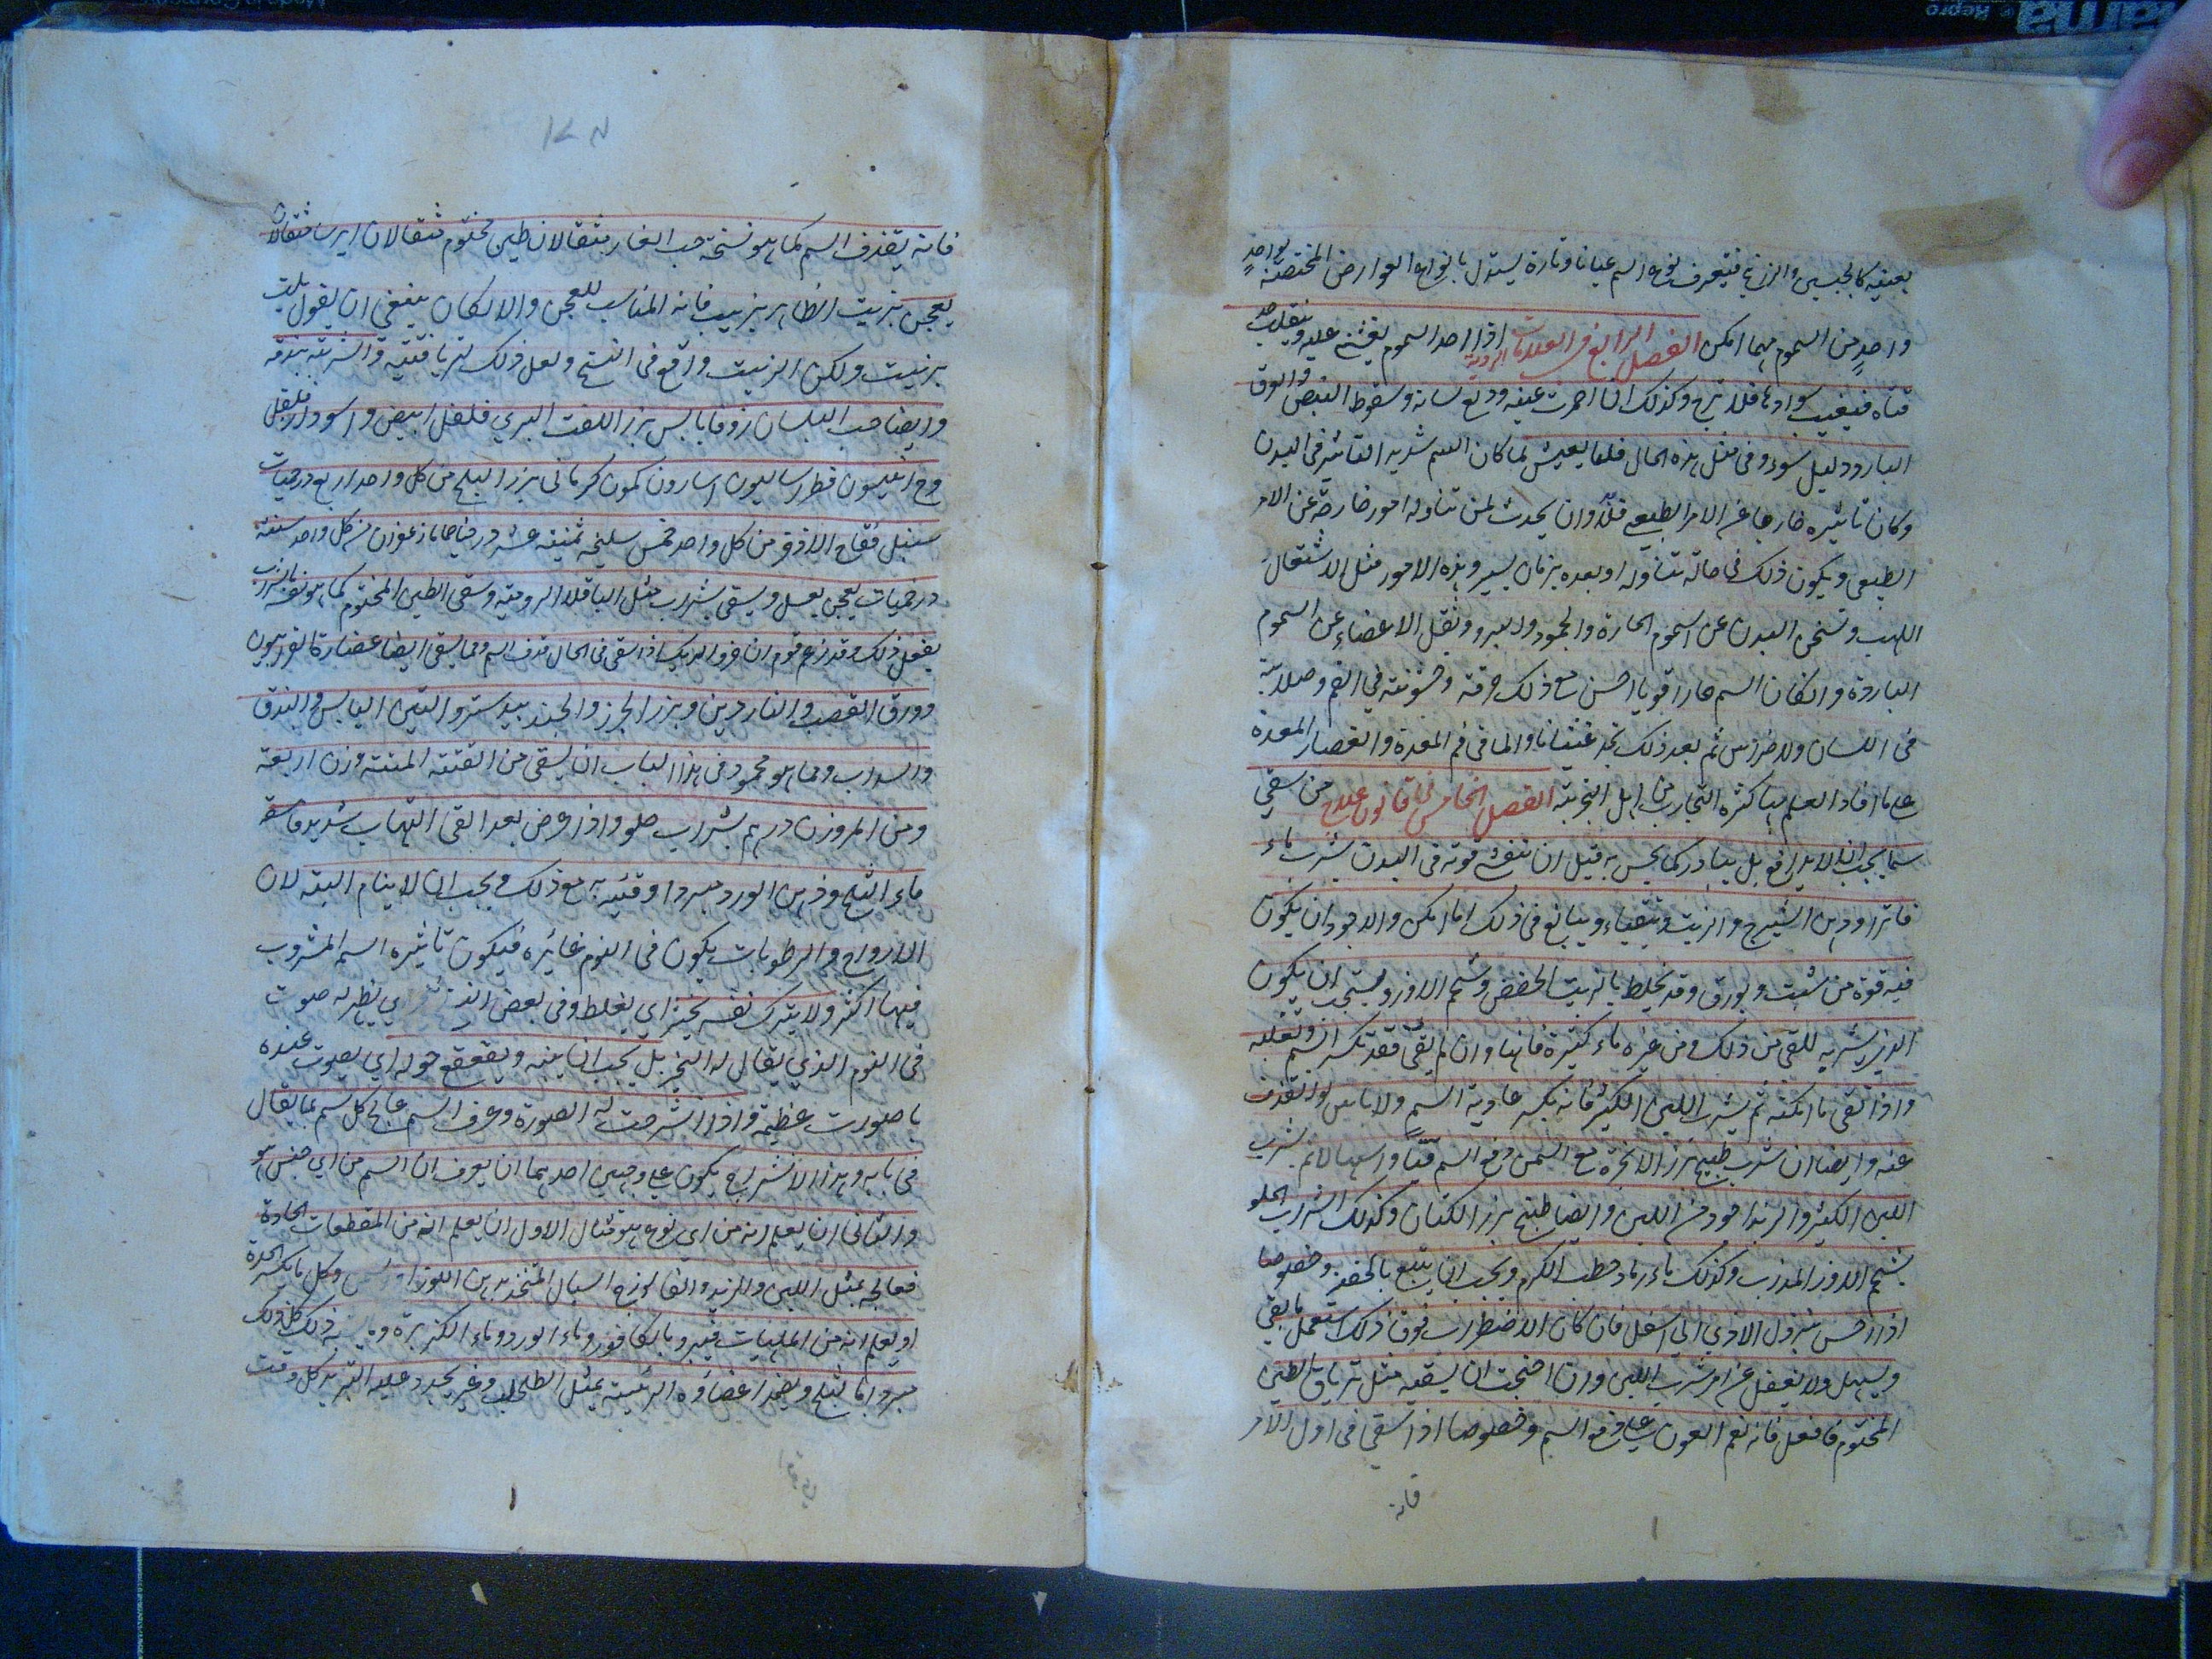 بعينه كالجبسين والزرنيخ فيتعرف نوع السم عيانا وتارة يستدل بانواع العوارض المختصة بواحد
واحد من السموم مهما امكن الفصل الرابع في العلامات الردية اذا احد السموم يغشى عليه وينقلب
فيغيب سوادها فلا يرج وكذلك اذا احمرت عينه ودلع لسانه وسقوط النبض والعرق
البارد دليل سوء وفي مثل هذه الحال قلما يعيش لما كان السم شديد التاثير في البدن
وكان تاثيره خارجا عن الامر الطبيعي فلا بد وان يحدث لمن تناوله امور خارجة عن الامر
الطبيعي ويكون ذلك في حالة تناوله او بعده بزمان يسير وهذه الامور مثل الاشتعال
اللهب وتسخن البدن عن السموم الحارة والجمود والبرد وثقل الاعضاء عن السموم
الباردة وان كان السم حارا قويا احس مع ذلك حرقة وخشونة في الفم وصلابة
في اللسان والاضراس ثم بعد ذلك تجد غثيانا والما في فم المعدة وانعصار المعدة
على ما افاد العلم بها كثرة التجارب من اهل التجربة الفصل الخامس في قانون علاج من سقي
سما يجب ان لا يدافع بل يبادر كما يحس به قبل ان تنفش قوته في البدن يشرب ماء
فاترا ودهن الشيرج والزيت ويتقياء ويبالغ في ذلك ما امكن والاجود ان يكون
فيه قوة من شبت وبورق وقد يخلط بالزيت الحضض وشحم الاوز ويستحب ان يكون
الذي يشربه للقي من ذلك ومن غيره ماء كثيرة فانها وان لم يتقي فقد تكسر السم وتغلبه
واذا تقي ما امكنه ثم يشرب اللبن الكثير فانه يكسر عادية السم ولا باس لو القذف
عنه وايضا ان شرب طبيخ بزر الانجرة مع السمن دفع السم قيئا واسهالا ثم يشرب
اللبن الكثير والزبد اجود من اللبن وايضا طبيخ بزر الكتان وكذلك الشراب الحلو
بشحم الاوز المذاب وكذلك ماء رماد حطب الكرم ويجب ان يتبع بالحقن وخصوصا
اذا احس بنزول الاذي الي اسفل فان كان الاضطراب فوق ذلك استعمل ما يقي
ويسهل ولا يغفل عن امر شرب اللبن وان احتجت ان يسقيه مثل ترياق الطين
المختوم فافعل فانه نعم العون على دفع السم وخصوصا اذا سقي في اول الامر
فانه
فانه يقذف السم كما هو نسخته حب الغار مثقالان طين مختوم مثقالان ايرسا مثقالان
يعجن بزيت الظاهر بزبيب فانه المناسب للعجن والا لكان ينبغي ان يقول يلت
بزيت ولكن الزيت واقع في النسخ ولعل ذلك لترياقيته والشربة بندقة
وايضا حب البلسان زوفا يابس بزر اللفت البري فلفل ابيض واسود دارفلفل
وج انيسون فطراساليون اسارون كمون كرماني بزر البلح من كل واحد اربع درخميات
سنبل فقاح الاذخر من كل واحد خمس سليخة ثمنية عشر درخميا زعفران من كل واحد ستة
درخميات يعجن بعسل ويسقي بشراب مثل الباقلا الرومية وسقي الطين المختوم كما هو نفسه بالشراب
يفعل ذلك وقد زعم قوم ان خرو الديك اذا سقي في الحال قذف السم ومما يسقي ايضا عصارة الفراسيون
وورق القصب والناردين وبزر الجزر والجند بيدستر والتين اليابس والبندق
والسداب ومما هو محمود في هذا الباب ان يسقي من القنة المنتنة وزن اربعة
ومن المر وزن درهم بشراب حلو واذا عرض بعد القي التهاب شديد فاسقه
ماء الثلج ودهن الورد مبردا وقيئه به مع ذلك ويجب ان لا ينام البتة لان
الارواح والرطوبات يكون في النوم غائرة فيكون تاثيره السم المشروب
فيها اكثر ولا يترك نفسه يخثر اي يغلظ وفي بعض النسخ اي يظهر له صوت
في النوم الذي يقال له النخر بل يجب ان ينبه ويقعقع حوله اي يصوت عنده
باصوات عظيمة واذا انشرحت له الصورة وعرف السم عالج كل سم بما يقال
في بابه وهذا الانشراح يكون على وجهين احدهما ان يعرف ان السم من اي جنس هو
والثاني ان يعلم انه من اي نوع هو مثال الاول ان يعلم انه من المقطعات الحادة
فعالجه بمثل اللبن والزبد والفالوذج السيال المتخذ بدهن اللوز وكل ما يكسر الحدة
او يعلم انه من الملهبات فيبرد بالكافور وماء الورد وماء الكزبرة ذلك كل ذلك
مبردا بالثلج ويضمد اعضاؤه الرئيسة بمثل الطحلب وغيره يجدد عليه التبريد كل وقت